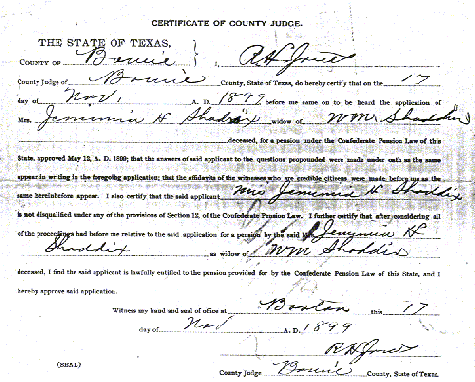 CERTIFICATE OF COUNTY JUDGE.
THE STATE OF TEXAS,
COUNTY OF Bowie } I, R H Jones
County Judge of Bowie County, State of Texas, do hereby certify that on the 17
day of Nov, A. D. 1899 before me same on to be heard the application of
Mrs. Jemimia H Shaddix widow of WM Shaddix
deceased, for a pension under the Confederate Pension Law of this
State, approved May 12, A. D. 1899; that the answers of said applicant to the questions propounded were made under oath as the same
appear in writing in the foregoing application; that the affidavits of the witnesses who are credible citizens were made before me as the
same hereinbefore appear. I also certify that the said applicant Mrs Jemimia H Shaddix
is not disqualified under any of the provisions of Section 12, of the Confederate Pension Law. I further certify that after considering all
of the proceedings had before me relative to the said application for a pension by the said Mrs. Jemimia H
Shaddix as widow of WM Shaddix
deceased, I find the said applicant is lawfully entitled to the pension provided for by the Confederate Pension Law of this State, and I
hereby approve said application.
Witness my hand and seal of office at Boston this 17
day of Nov A. D. 1899
R H Jones
(SEAL) County Judge Bowie County, State of Texas.